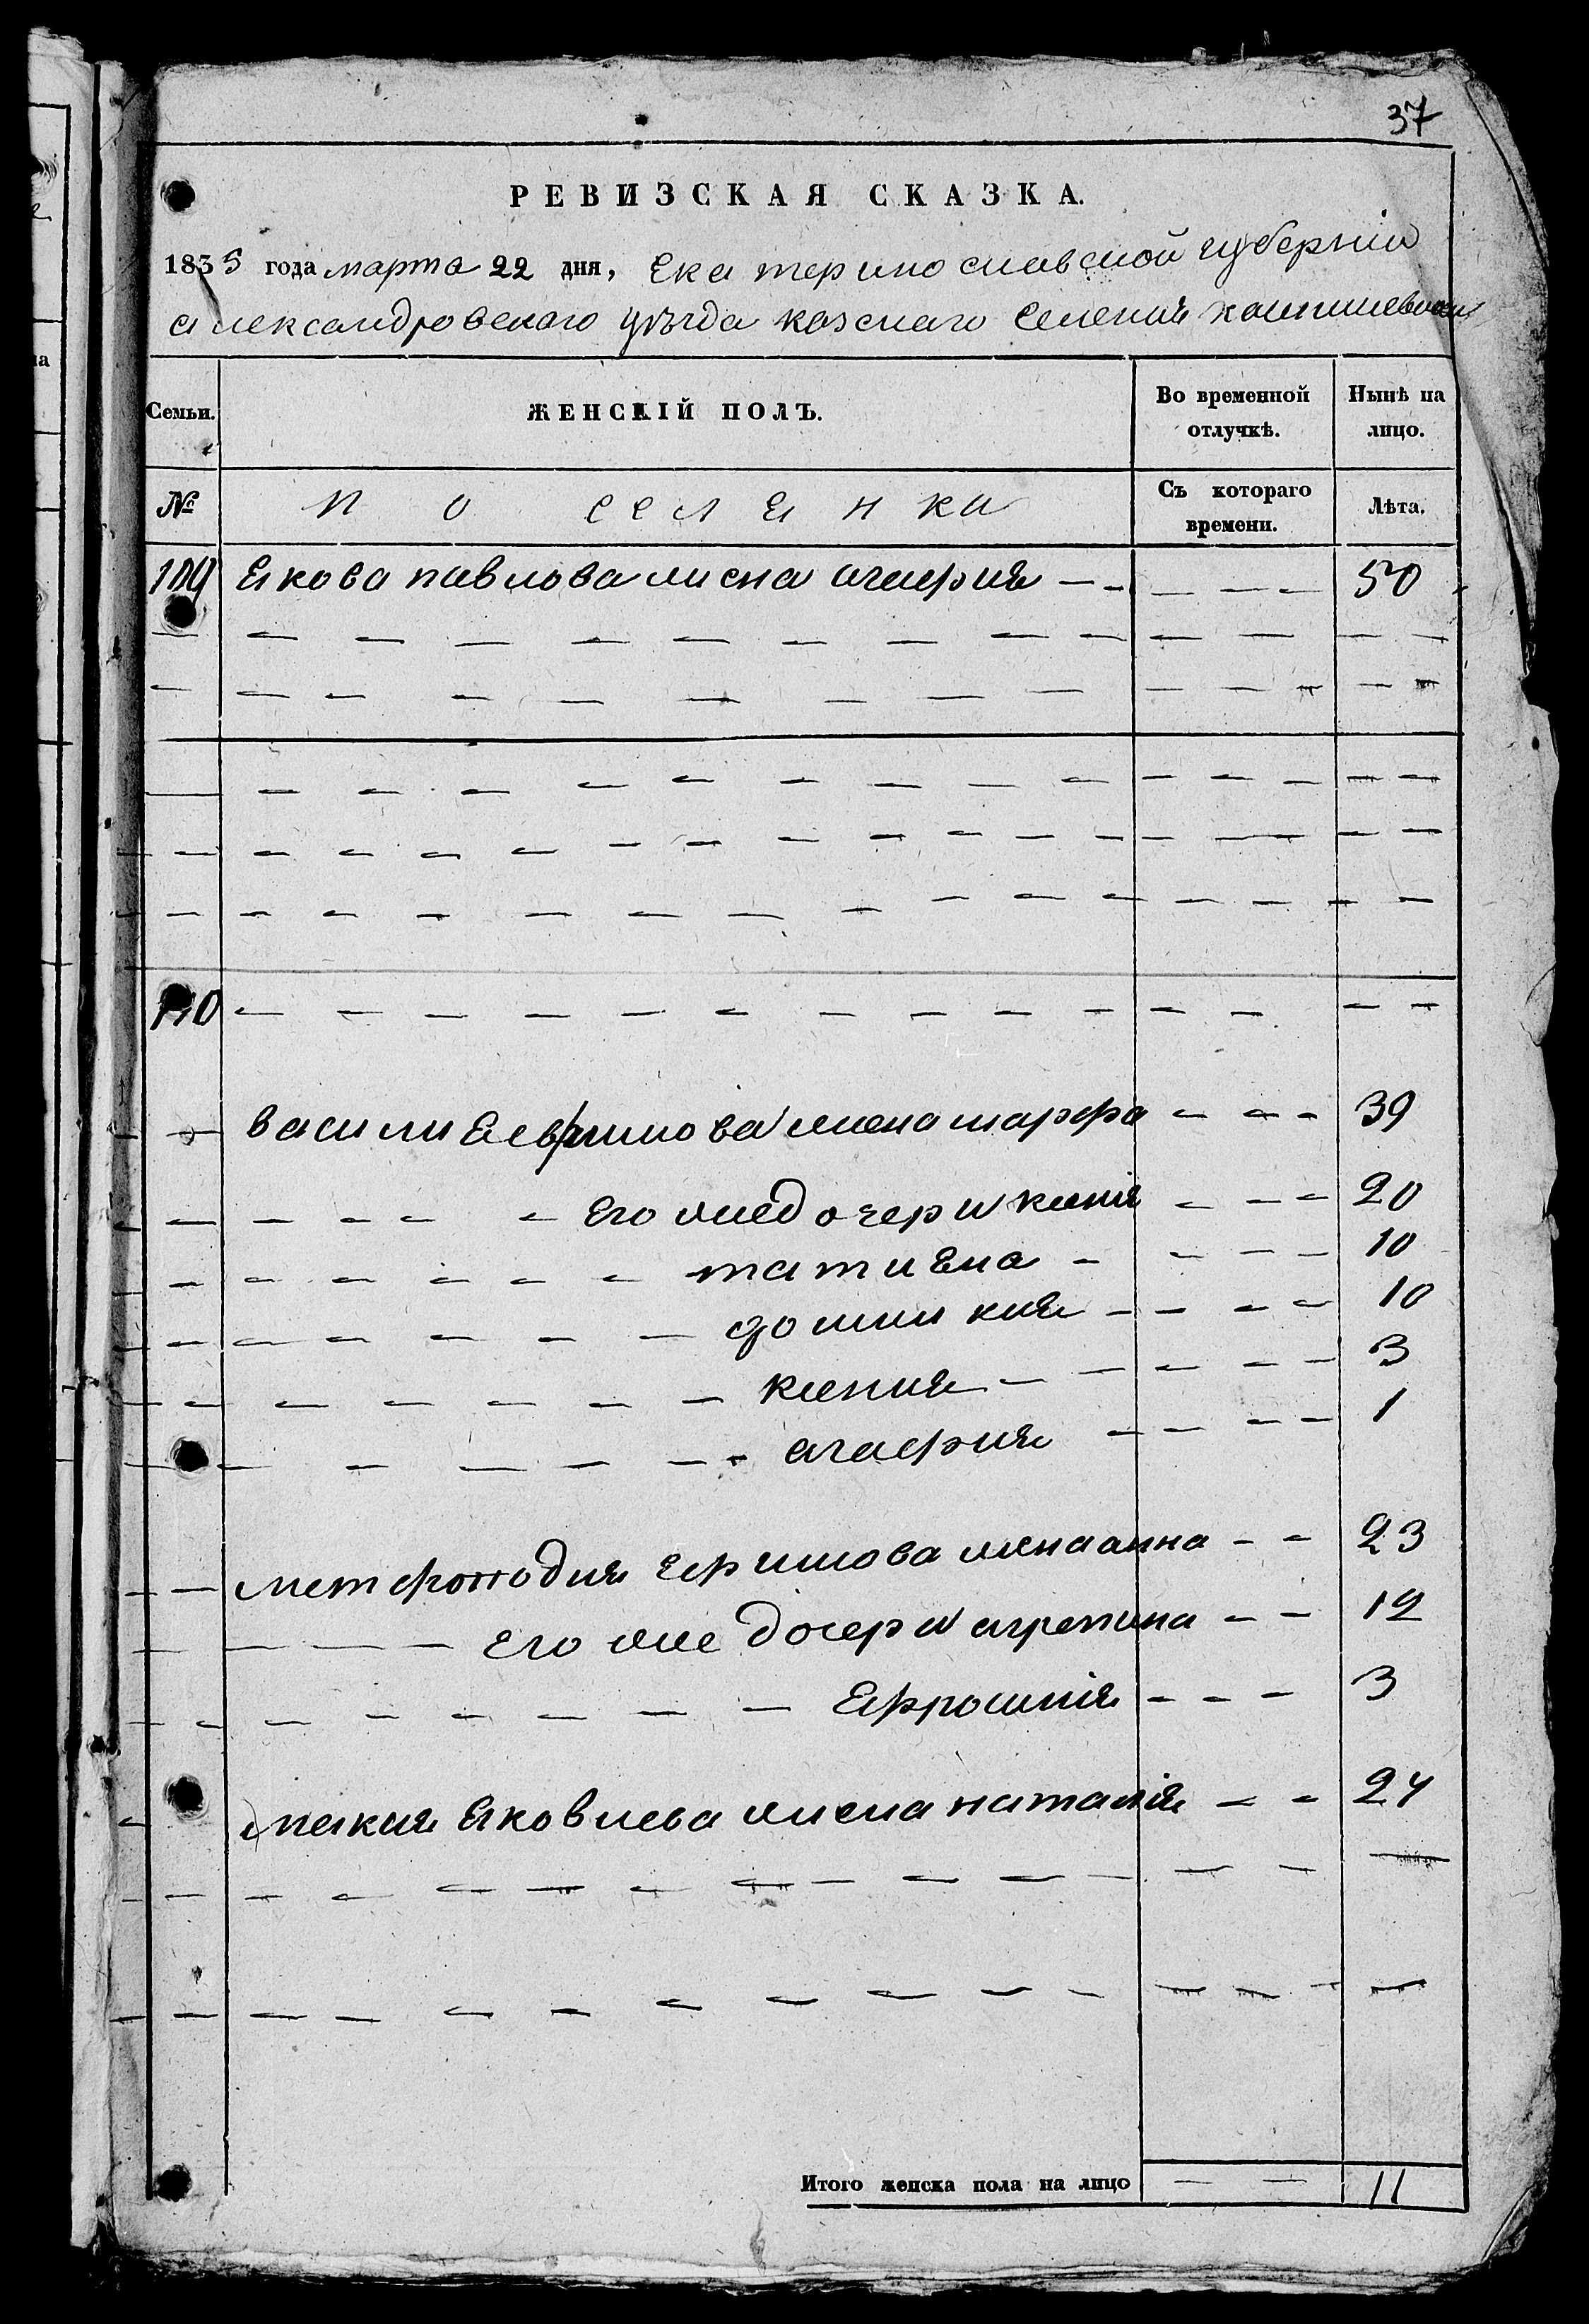 37
РЕВИЗСКАЯ СКАЗКА.
1835 года марта 22 дня, Екатеринославской губернии
александровскаго уѣзда казенаго Селения
Семьи. ЖЕНСКІЙ ПОЛЪ. Во временной отлучкѣ. Нынѣ на лицо.
№ поселенка Съ котораго времени. Лѣта.
109 Якова павлова жена агафия 50
110
василия жена марфа 39
Его же дочери ксенія 20
татияна 10
домникия 10
ксения 3
агафия 1
жена анна 23
Его же дочери агрепина 12
Ефросинія 3
Яковлева жена наталія 24
Итого женска пола на лицо 11